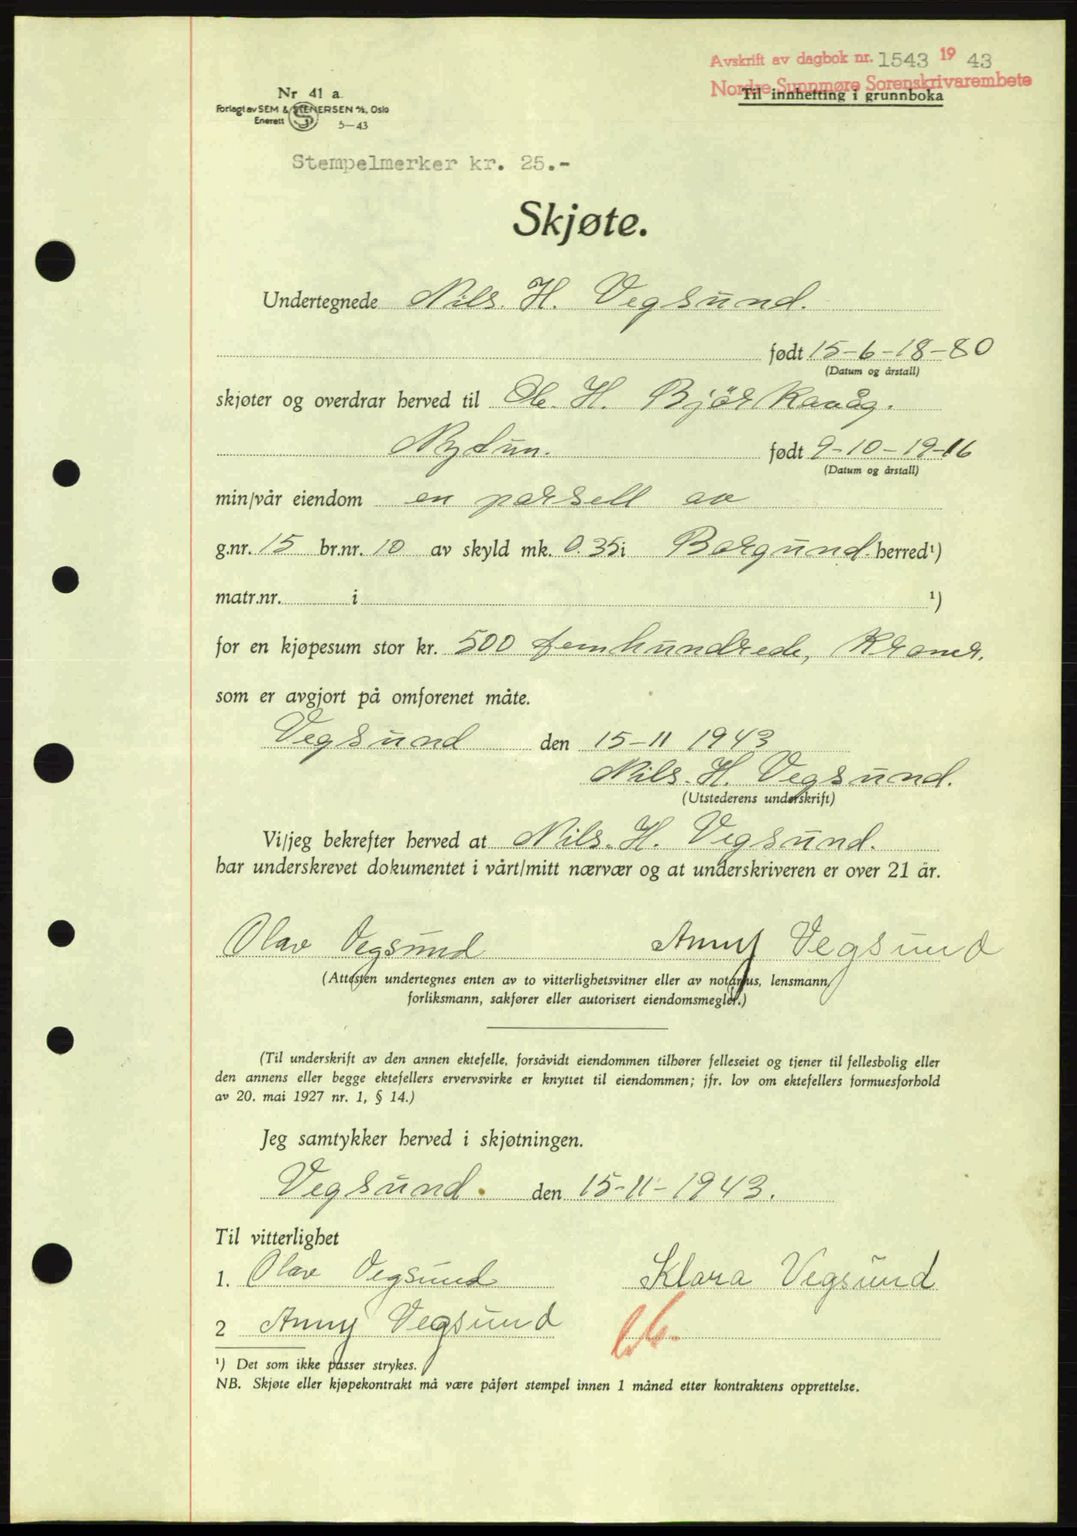 Avskrift av dagbok nr. 1543 19 43
Nordre Sunnmøre Sorenskrivarembete
Til innhefting i grunnboka
Nr 41 a
Forlagt av SEM & STENERSEN A/S, Oslo
Enerett 5-43
Stempelmerker kr. 25.-
Skjøte.
Undertegnede Nils. H. Vegsund.
født 15-6-18-80
(Datum og årstall)
skjøter og overdrar herved til Ole. H. Björkavåg.
Nytun. født 9-10-19-16
(Datum og årstall)
min/vår eiendom en parsell av
g.nr. 15 br.nr. 10 av skyld mk. 0.35 i Borgund. herred¹)
matr.nr. i ¹)
for en kjøpesum stor kr. 500 femhundrede, Kroner.
som er avgjort på omforenet måte.
Vegsund den 15-11 1943
Nils. H. Vegsund.
(Utstederens underskrift)
Vi/jeg bekrefter herved at Nils. H. Vegsund.
har underskrevet dokumentet i vårt/mitt nærvær og at underskriveren er over 21 år.
Olav Vegsund Anny Vegsund
(Attesten undertegnes enten av to vitterlighetsvitner eller av notarius, lensmann,
forliksmann, sakfører eller autorisert eiendomsmegler.)
(Til underskrift av den annen ektefelle, forsåvidt eiendommen tilhører felleseiet og tjener til fellesbolig eller
den annens eller begge ektefellers ervervsvirke er knyttet til eiendommen; jfr. lov om ektefellers formuesforhold
av 20. mai 1927 nr. 1, § 14.)
Jeg samtykker herved i skjøtningen.
Vegsund. den 15-11-1943.
Til vitterlighet
1. Olav Vegsund Klara Vegsund
2 Anny Vegsund
¹) Det som ikke passer strykes.
NB. Skjøte eller kjøpekontrakt må være påført stempel innen 1 måned etter kontraktens opprettelse.